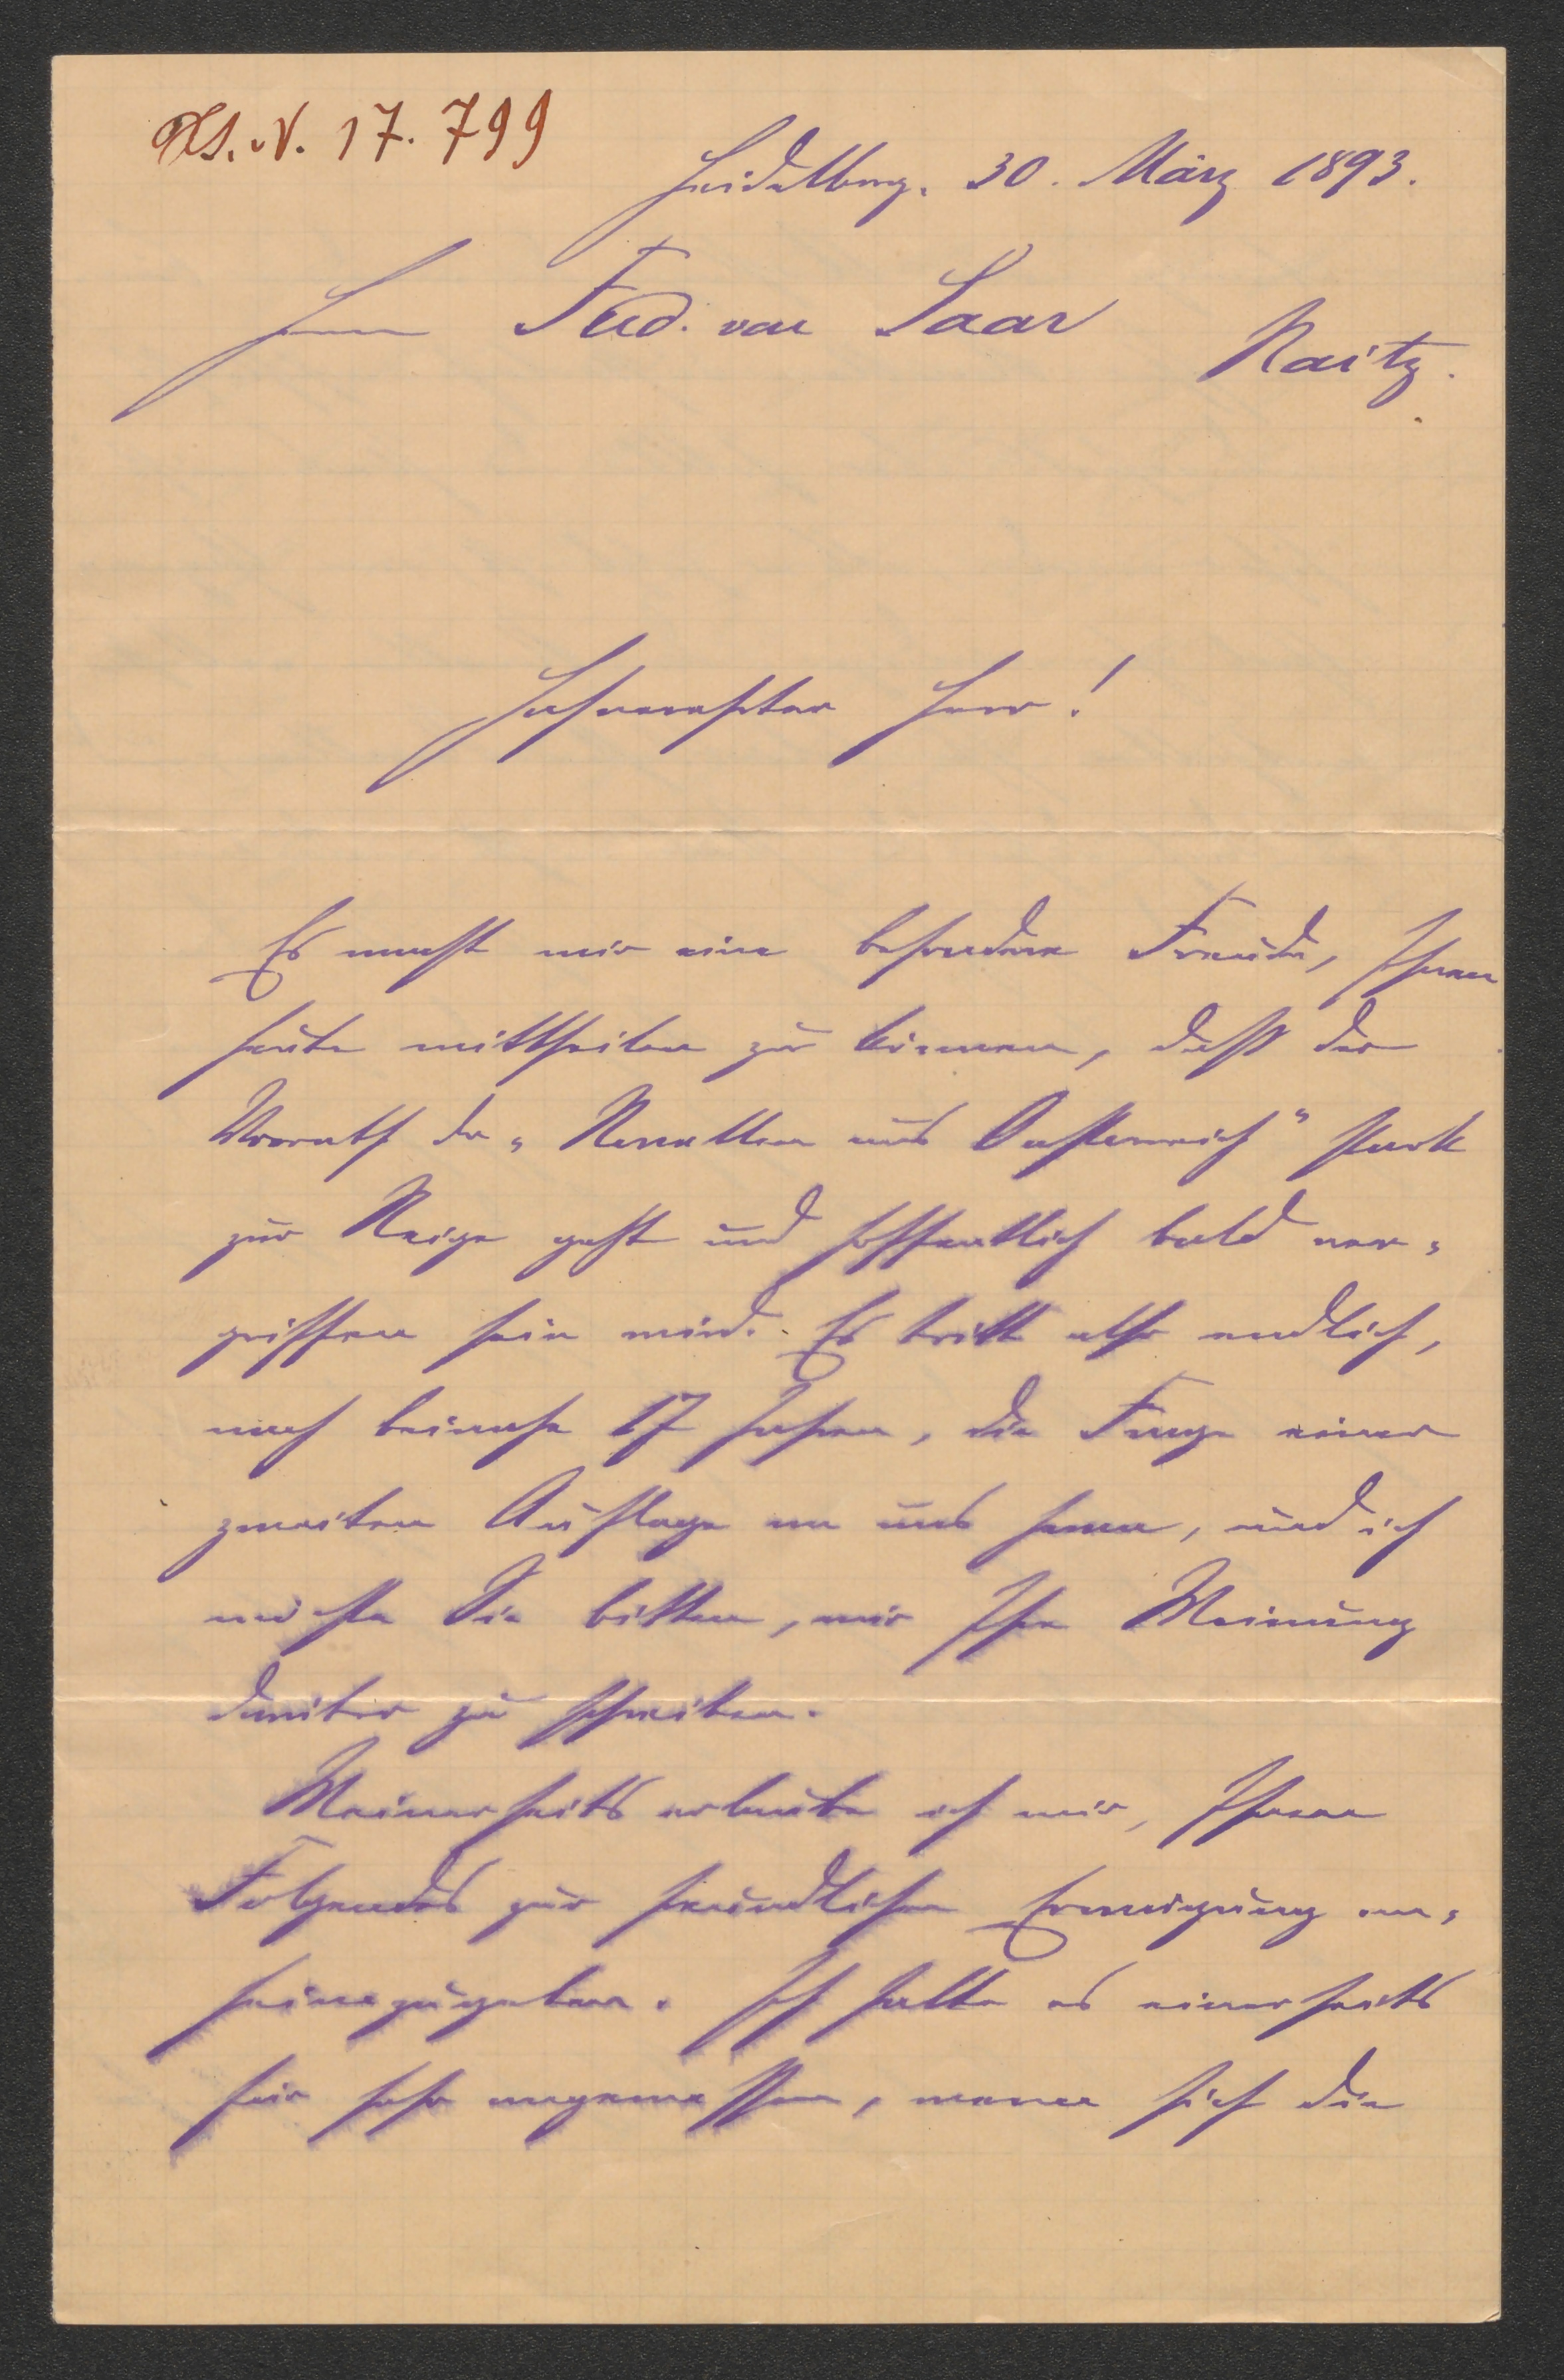 Hs. N. 17.799
Heidelberg. 30. März 1893.
Herrn Ferd. von Saar
Raitz.
Hochverehrter Herr!
Es macht mir eine besondere Freude, Ihnen
heute mittheilen zu können, daß der
Vorrath der „Novellen aus Oesterreich" stark
zur Neige geht und hoffentlich bald ver-
griffen sein wird. Es tritt also endlich,
nach beinahe 17 Jahren, die Frage einer
zweiten Auflage an uns heran, und ich
möchte Sie bitten, mir Ihre Meinung
darüber zu schreiben.
Meinerseits erlaube ich mir, Ihnen
Folgendes zur freundlichen Erwägung an-
heimzugeben. Ich halte es einerseits
für sehr angemessen, wenn sich die